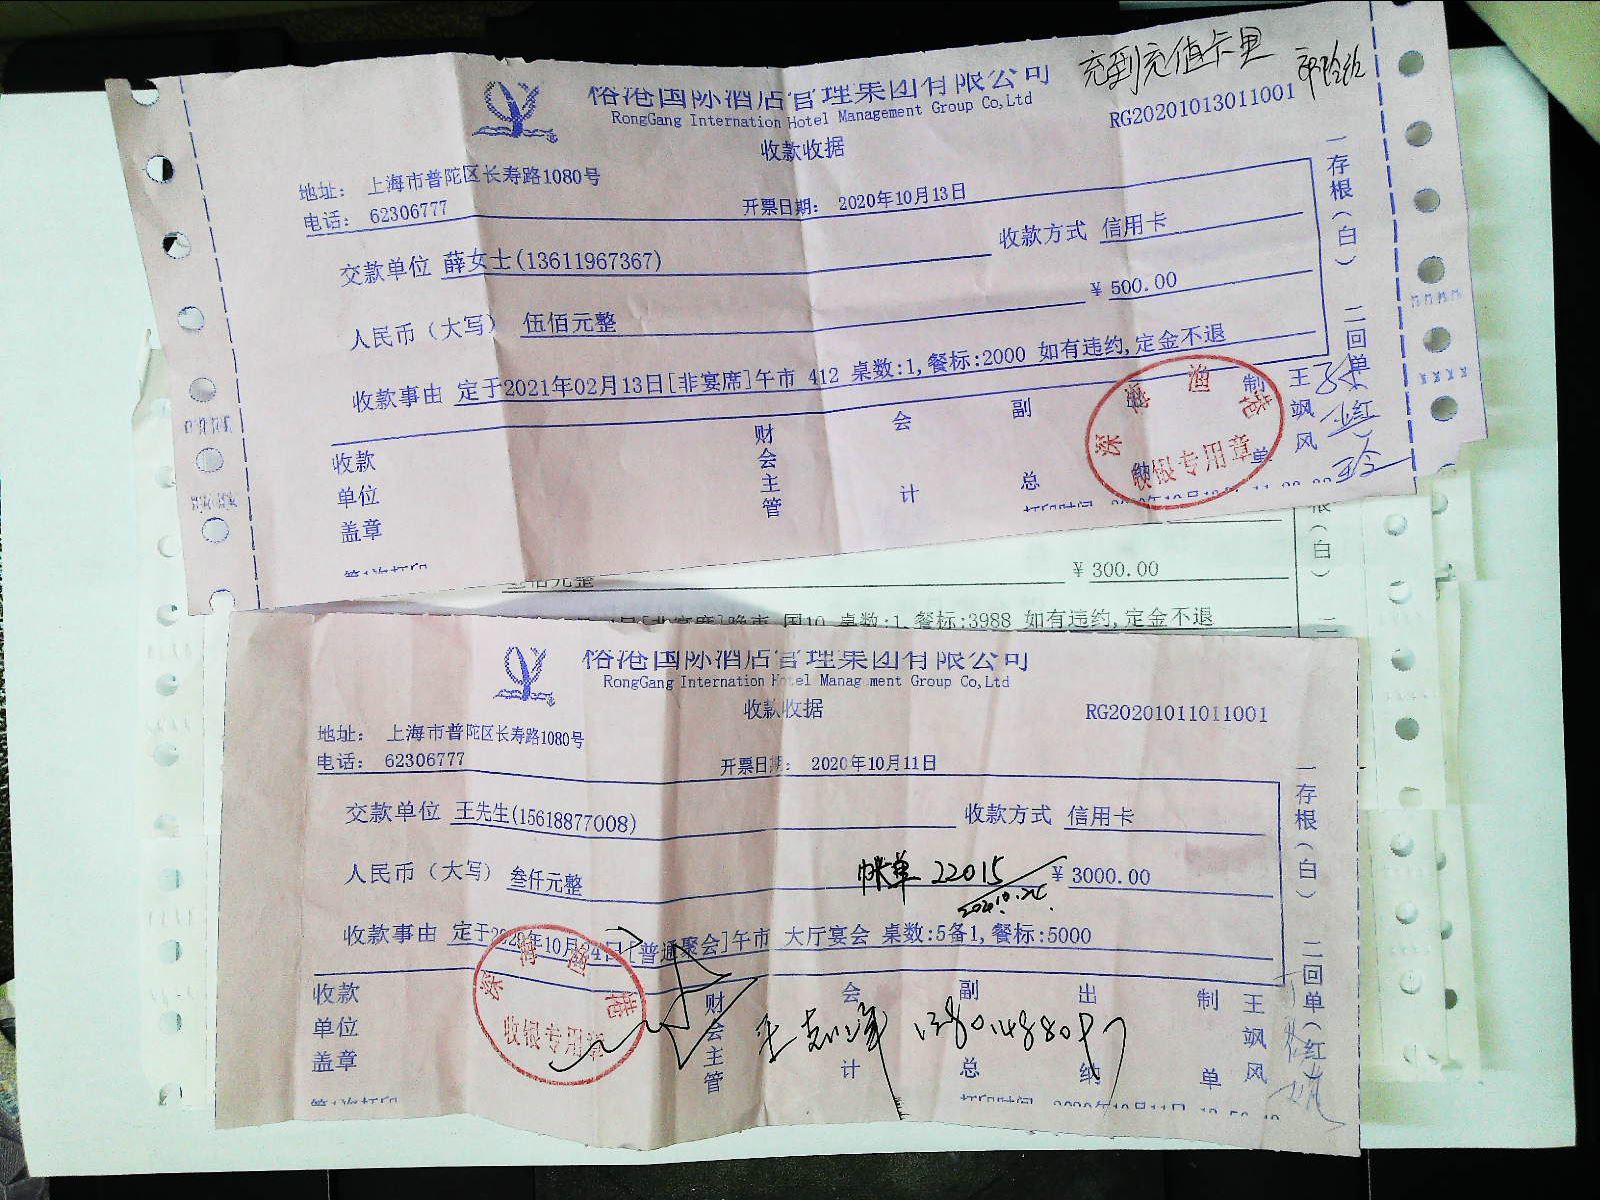 充到充值卡里
裕港国际酒店管理集团有限公司
RongGang Internation Hotel Management Group Co,Ltd
RG20201013011001
收款收据
地址： 上海市普陀区长寿路1080号
电话： 62306777
开票日期： 2020年10月13日
交款单位 薛女士(13611967367)
收款方式 信用卡
人民币（大写） 伍佰元整
￥ 500.00
收款事由 定于2021年02月13日[非宴席]午市 412 桌数:1,餐标:2000 如有违约,定金不退
收款单位盖章
财会主管
会计
副总
制单
王飒风
一存根（白） 二回单（红）
深海渔港
收银专用章
第1次打印
打印时间
￥ 300.00
[非宴席]晚市 国10 桌数:1,餐标:3988 如有违约,定金不退
裕港国际酒店管理集团有限公司
RongGang Internation Hotel Management Group Co,Ltd
收款收据
RG20201011011001
地址： 上海市普陀区长寿路1080号
电话： 62306777
开票日期： 2020年10月11日
交款单位 王先生(15618877008)
收款方式 信用卡
人民币（大写） 叁仟元整
帐单 22015
￥ 3000.00
收款事由 定于2020年10月24日[普通聚会]午市 大厅宴会 桌数:5备1,餐标:5000
收款单位盖章
财会主管
会计
副总
出纳
制单
王飒风
一存根（白） 二回单（红）
深海渔港
收银专用章
第1次打印
打印时间